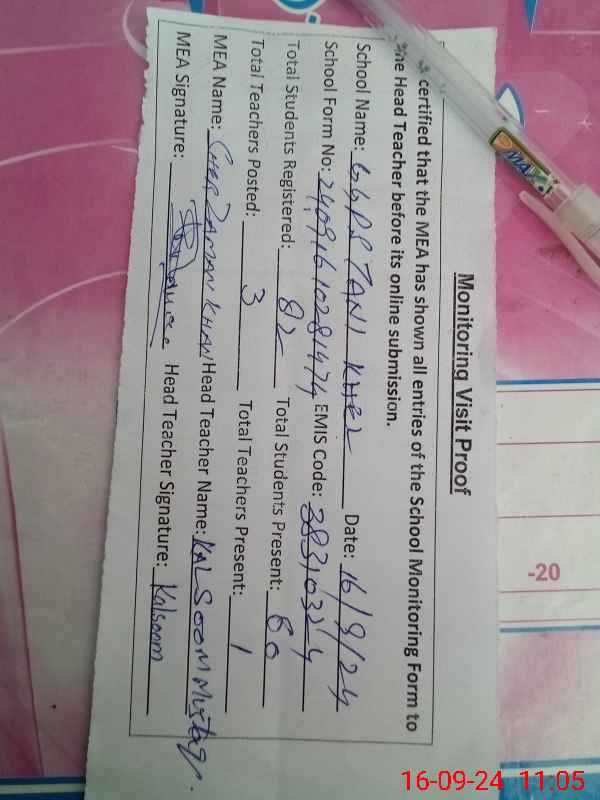 Monitoring Visit Proof
certified that the MEA has shown all entries of the School Monitoring Form to
the Head Teacher before its online submission.
School Name: GGPS ZANI KHEL Date: 16/9/24
School Form No: 24091610281474 EMIS Code:
Total Students Registered: 82 Total Students Present: 60
Total Teachers Posted: 3 Total Teachers Present: 1
MEA Name: ZAMAN KHAN Head Teacher Name: KALSOOM
MEA Signature: Head Teacher Signature: Kalsoom
-20
16-09-24 11:05